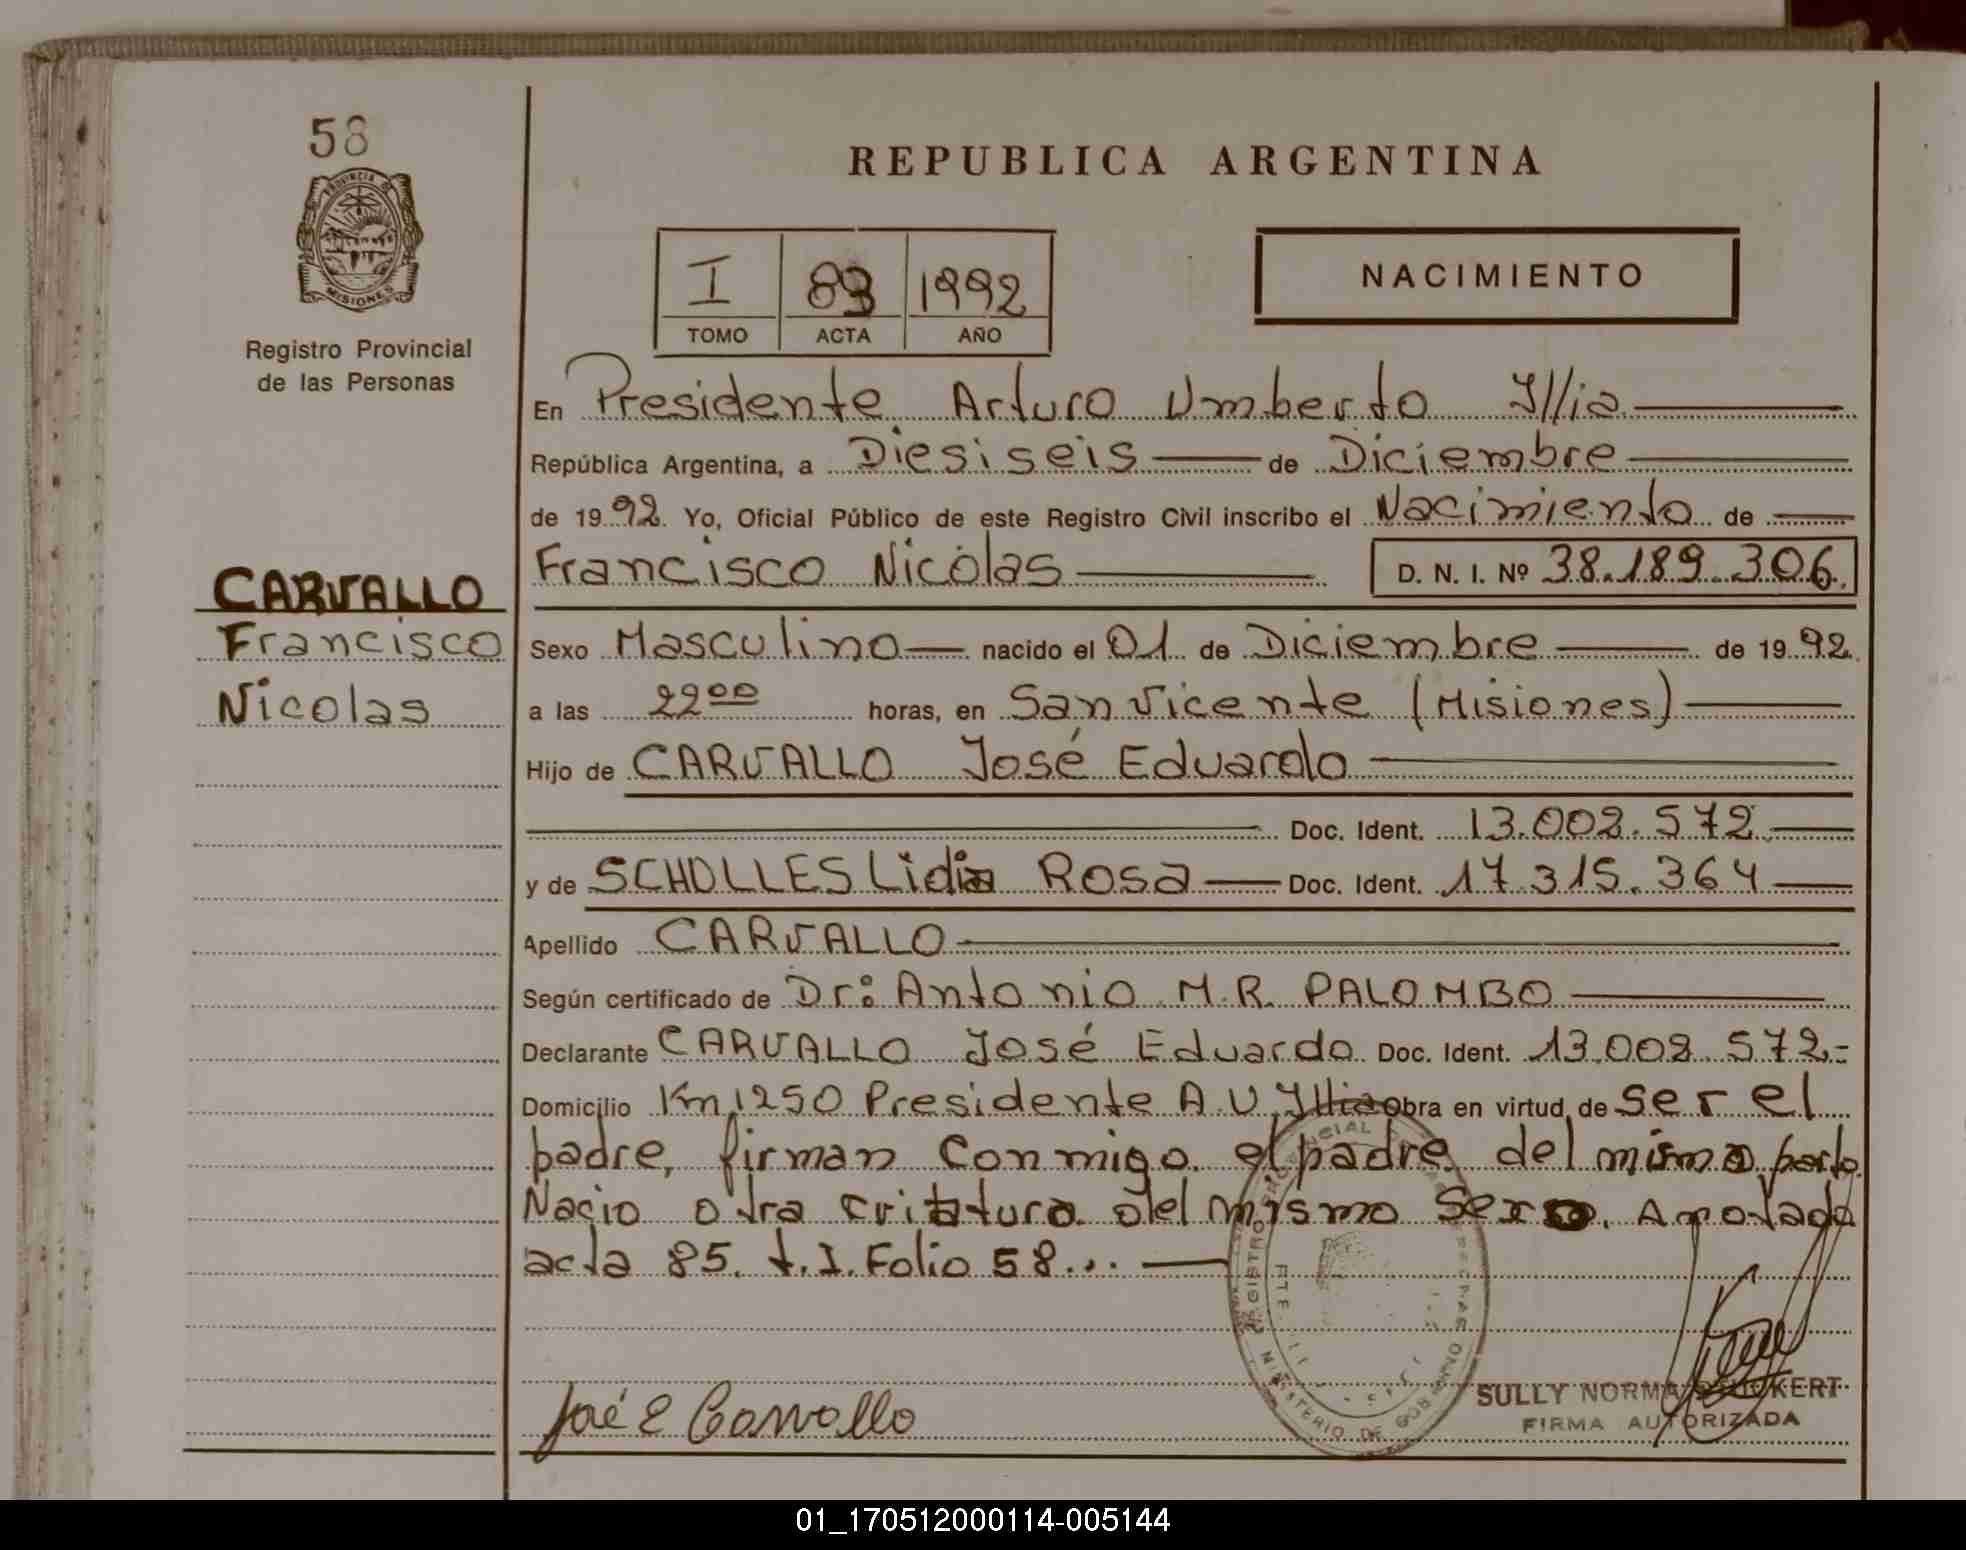 58
PROVINCIA DE
MISIONES
Registro Provincial
de las Personas
REPUBLICA ARGENTINA
I 83 1992
TOMO ACTA AÑO
NACIMIENTO
En Presidente Arturo Umberto Illia
República Argentina, a Diesiseis de Diciembre
de 1992. Yo, Oficial Público de este Registro Civil inscribo el Nacimiento de
Francisco Nicolas D. N. I. Nº 38.189.306.
CARVALLO
Francisco
Nicolas
Sexo Masculino nacido el 01 de Diciembre de 1992.
a las 22 00 horas, en San Vicente (Misiones)
Hijo de CARVALLO José Eduardo
Doc. Ident. 13.002.572
y de SCHOLLES Lidia Rosa Doc. Ident. 17.315.364
Apellido CARVALLO
Según certificado de Dr: Antonio M.R. PALOMBO
Declarante CARVALLO José Eduardo Doc. Ident. 13.002.572.-
Domicilio Km,1250 Presidente A.U.Illia Obra en virtud de ser el
padre, firman conmigo. el padre. del mismo parto
Nacio otra criatura del mismo sexo. Anotada
acta 85. t.I. Folio 58...
José E Carvallo
SULLY NORMA
FIRMA AUTORIZADA
MINISTERIO DE GOBIERNO
01_170512000114-005144